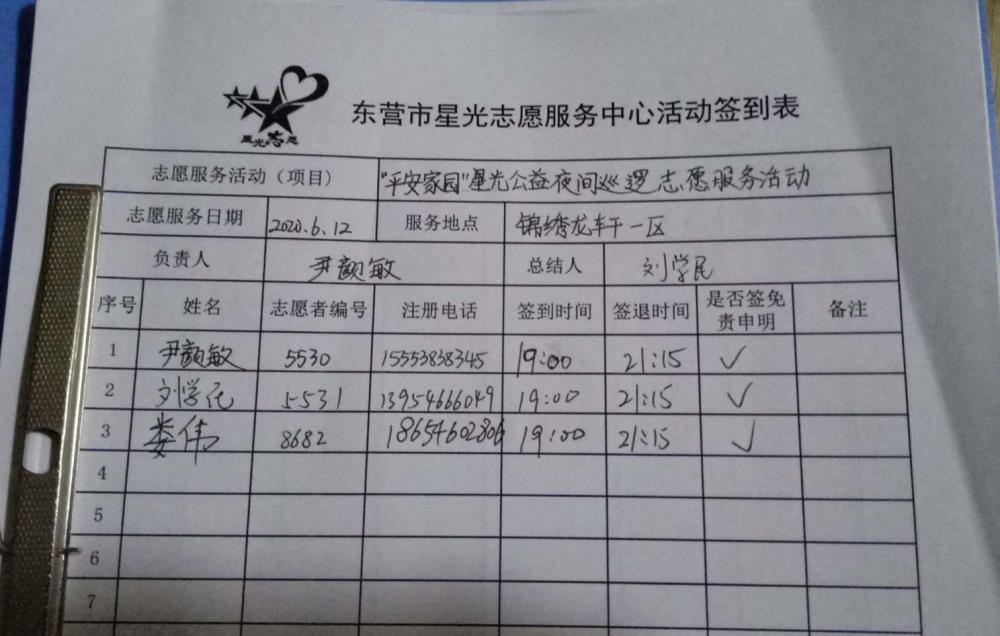 星光志愿
东营市星光志愿服务中心活动签到表
志愿服务活动（项目） "平安家园"星光公益夜间巡逻志愿服务活动
志愿服务日期 2020.6.12 服务地点 锦绣龙轩一区
负责人 尹颜敏 总结人 刘学民
序号 姓名 志愿者编号 注册电话 签到时间 签退时间 是否签免责申明 备注
1 尹颜敏 5530 15553838345 19:00 21:15 ✓
2 刘学民 5531 13954666049 19:00 21:15 ✓
3 娄伟 8682 18654602806 19:00 21:15 ✓
4
5
6
7